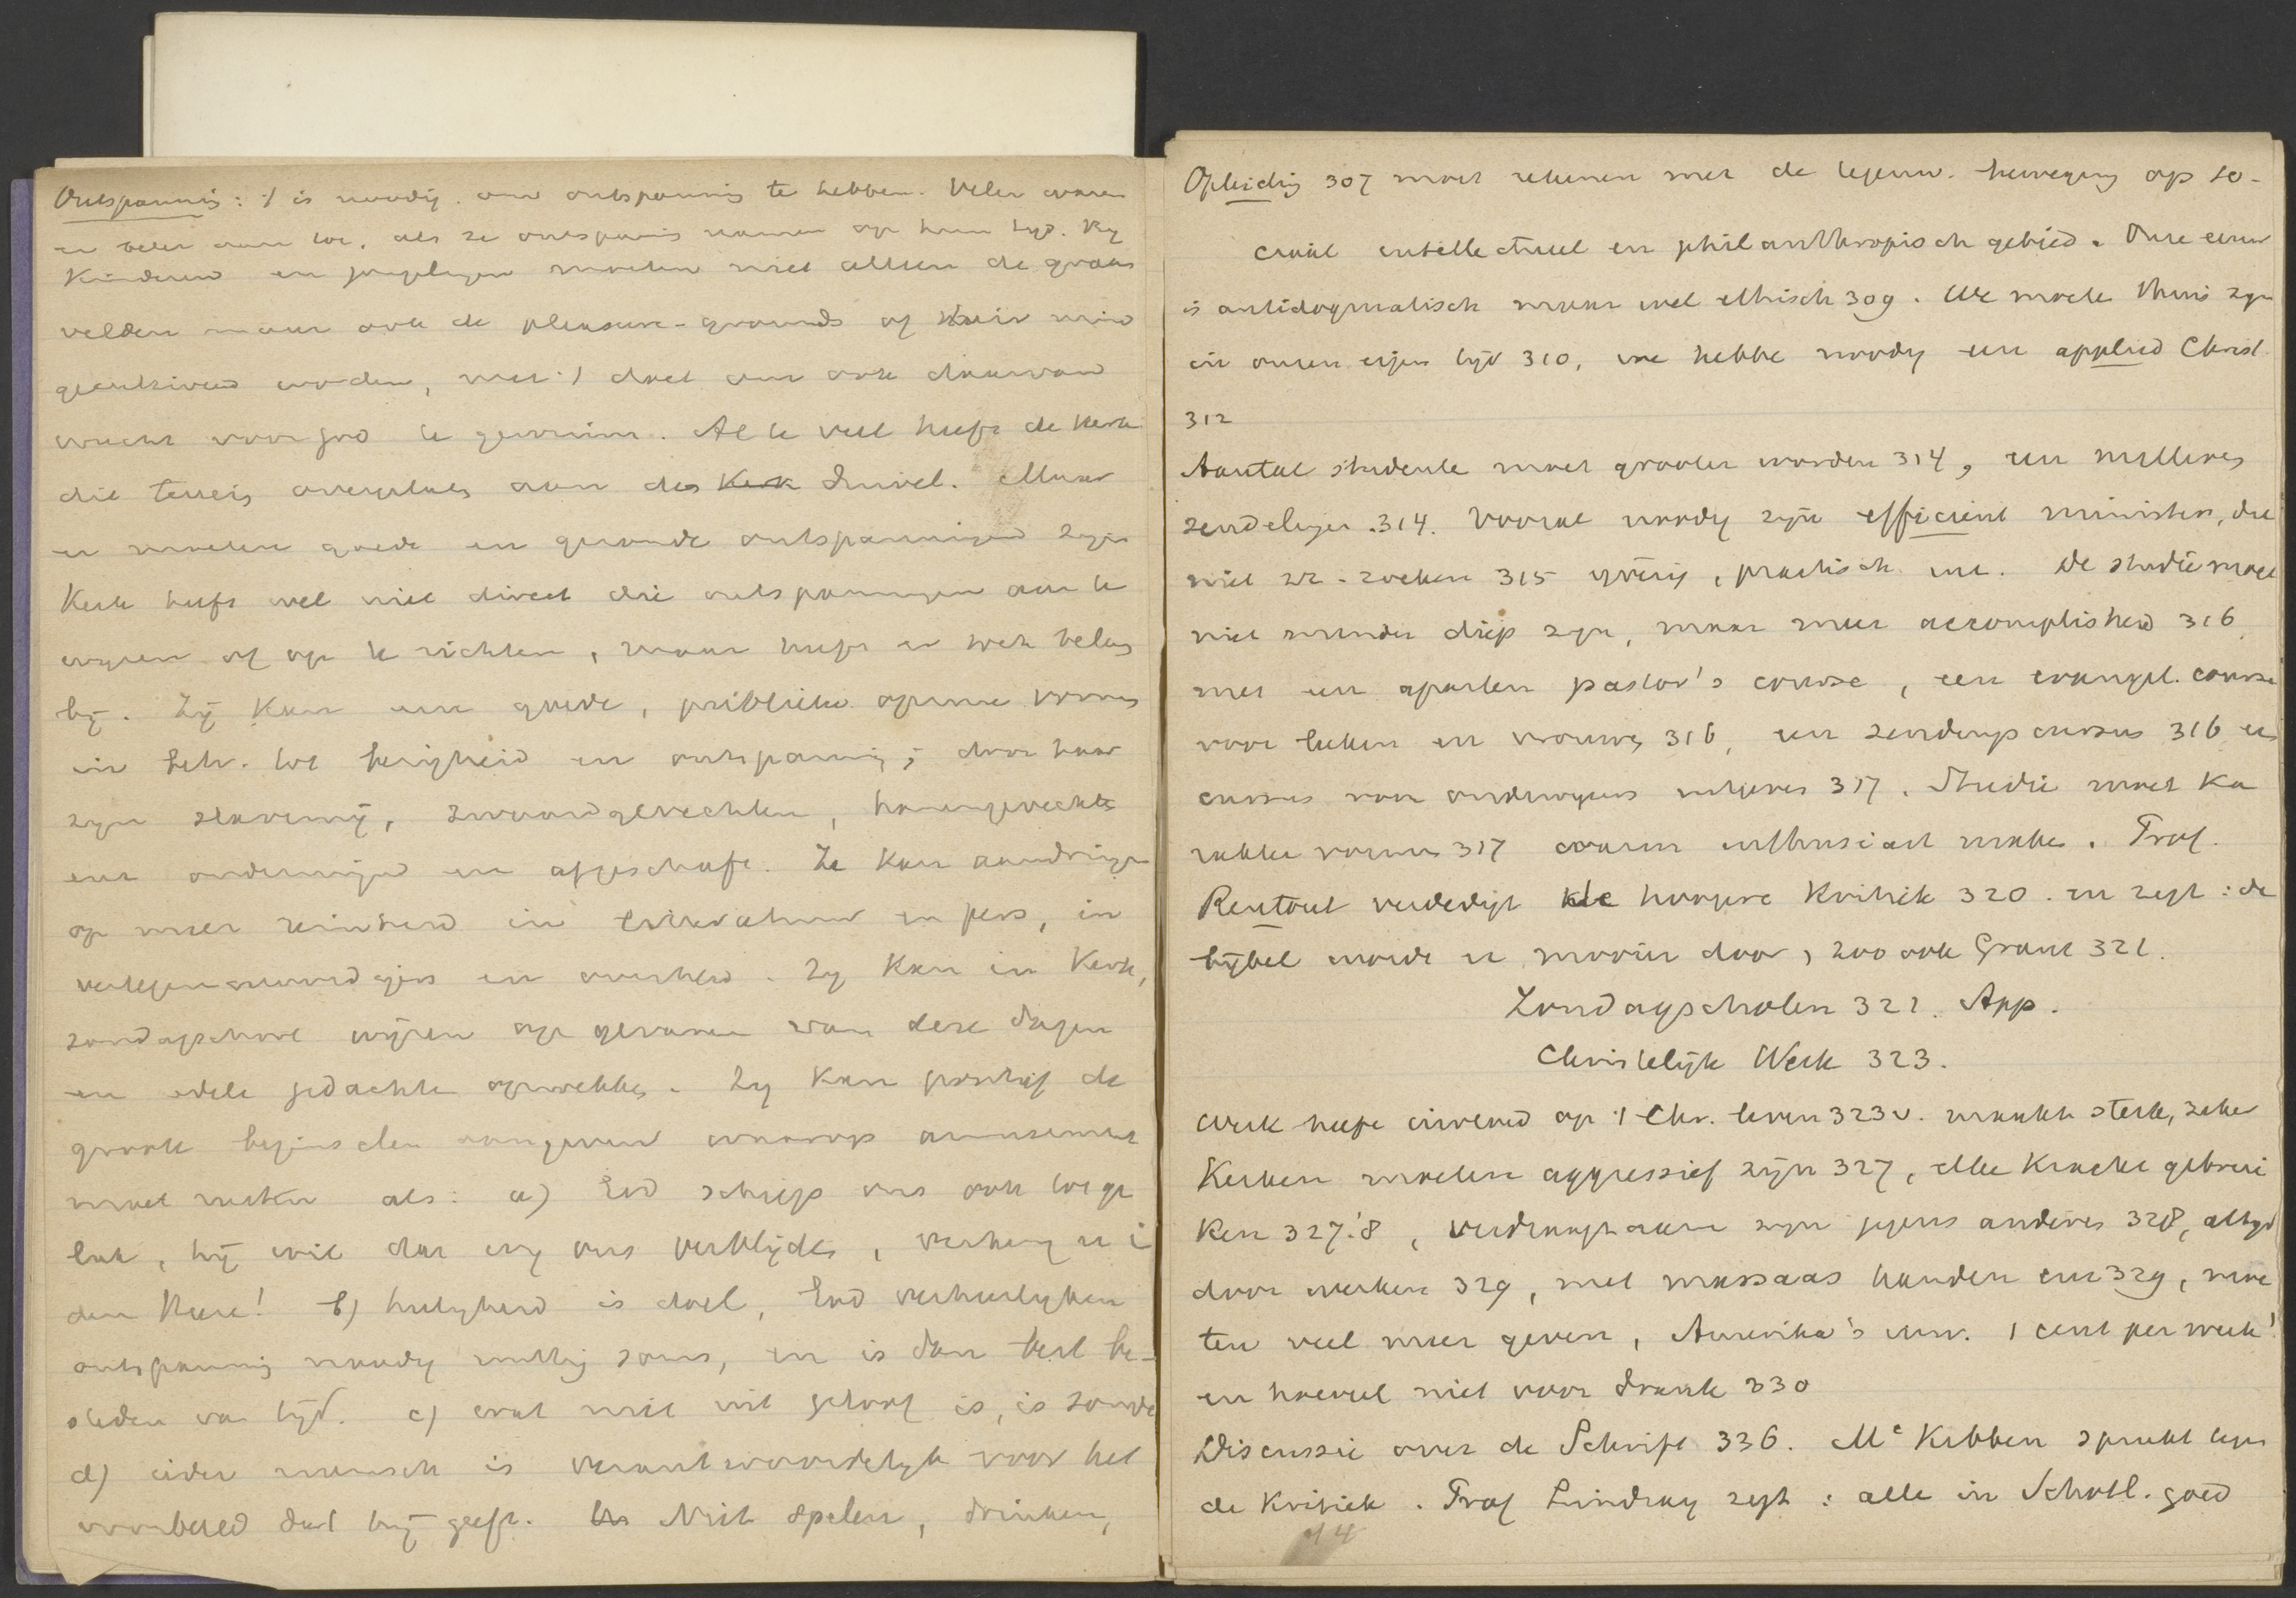 Ontspanning: 't is noodig om ontspanning te hebben. Velen waren
er beter aan toe, als ze ontspannis namen op hun tijd. Bij
Kinderen en jongelingen moeten niet alleen de graan
velden maar ook de pleasure-grounds of their mind
gecultiveerd worden, met 't doel om ook daarvan
vrucht voor God te gewinnen. Al te veel heeft de Kerk
dit terrein overgelaten aan des Kerk Duivel. Maar
er moeten goede en gezonde ontspanningen zijn
Kerk heeft wel niet direct die ontspanningen aan te
wijzen of op te richten, maar heeft er toch belang
bij. Zij kan een goede, publieke opinie vormen
in betr. tot bezigheid en ontspanning; door haar
zijn slavernij, zwaardgevechten, hanengevechten
enz ondermijnd en afgeschaft. Ze kan aandringen
op meer reinheid in literatuur en pers, in
vertegenwoordigers en overheid. Zij kan in Kerk,
zondagschool wijzen op gevaren van deze dagen
en edele gedachten opwekken. Zij kan positief de
groote beginselen aangeven waarop amusement
moet rusten als: a) God schiep ons ook tot ge
luk, hij wil dat wij ons verblijden, verheug u i
den Heere! b) heiligheid is doel, God verheerlijken
ontspanning noodig nuttig soms, en is dan best be-
steden van tijd. c) wat niet uit geloof is, is zonde
d) ieder mensch is verantwoordelijk voor het
voorbeeld dat hij geeft. Niet spelen, drinken,
Opleiding 307 moet rekenen met de tegenw. beweging op so-
ciaal intellectueel en philanthropisch gebied. Onze eeuw
is antidogmatisch maar wel ethisch 309. We moete thuis zijn
in onzen eigen tijd 310, we hebbe noodig een applied Christ.
312
Aantal studente moet grooter worden 314, en
zendelingen 314. Vooral noody zijn efficient ministers, die
niet zichz. zoeken 315 ijverig, practisch enz. De studie moet
niet minder diep zijn, maar meer accomplished 316
met een aparten pastor's course, een evangel. course
voor leeken en vrouwen 316, een zendingscursus 316 en
cursus voor onderwijzers 317. Studie moet ka
rakter vormen 317 warm enthusiast maken. Prof.
Rentoul verdedigt de hoogere Kritiek 320. en zegt: de
bijbel worde er mooier door, zoo ook Grant 321.
Zondagscholen 322. App.
Christelijk Werk 323.
Werk heeft invloed op 't Chr. leven 323v. maakt sterk, zeker
Kerken moeten aggressief zijn 327, alle Kracht gebrui
ken 327.'8, verdraagzaam zijn jegens anderen 328, altijd
door werken 329, met massaas handen enz 329, moe
ten veel meer geven, Amerika's univ. 1 cent per week!
en hoeveel niet voor drank 330
Discussie over de Schrift 336. Mc Kibben spreekt tegen
de Kritiek. Prof Lindsay zegt: alle in Schotl. goed
14